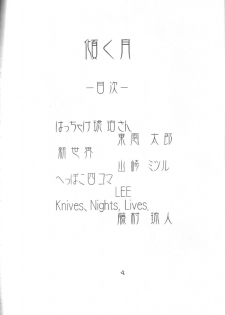 傾く月
—目次—
はっちゃけ琥珀さん
東風 太郎
新世界
山崎 ミツル
へっぽこ四コマ
LEE
Knives, Nights, Lives,
藤村 琢人
4